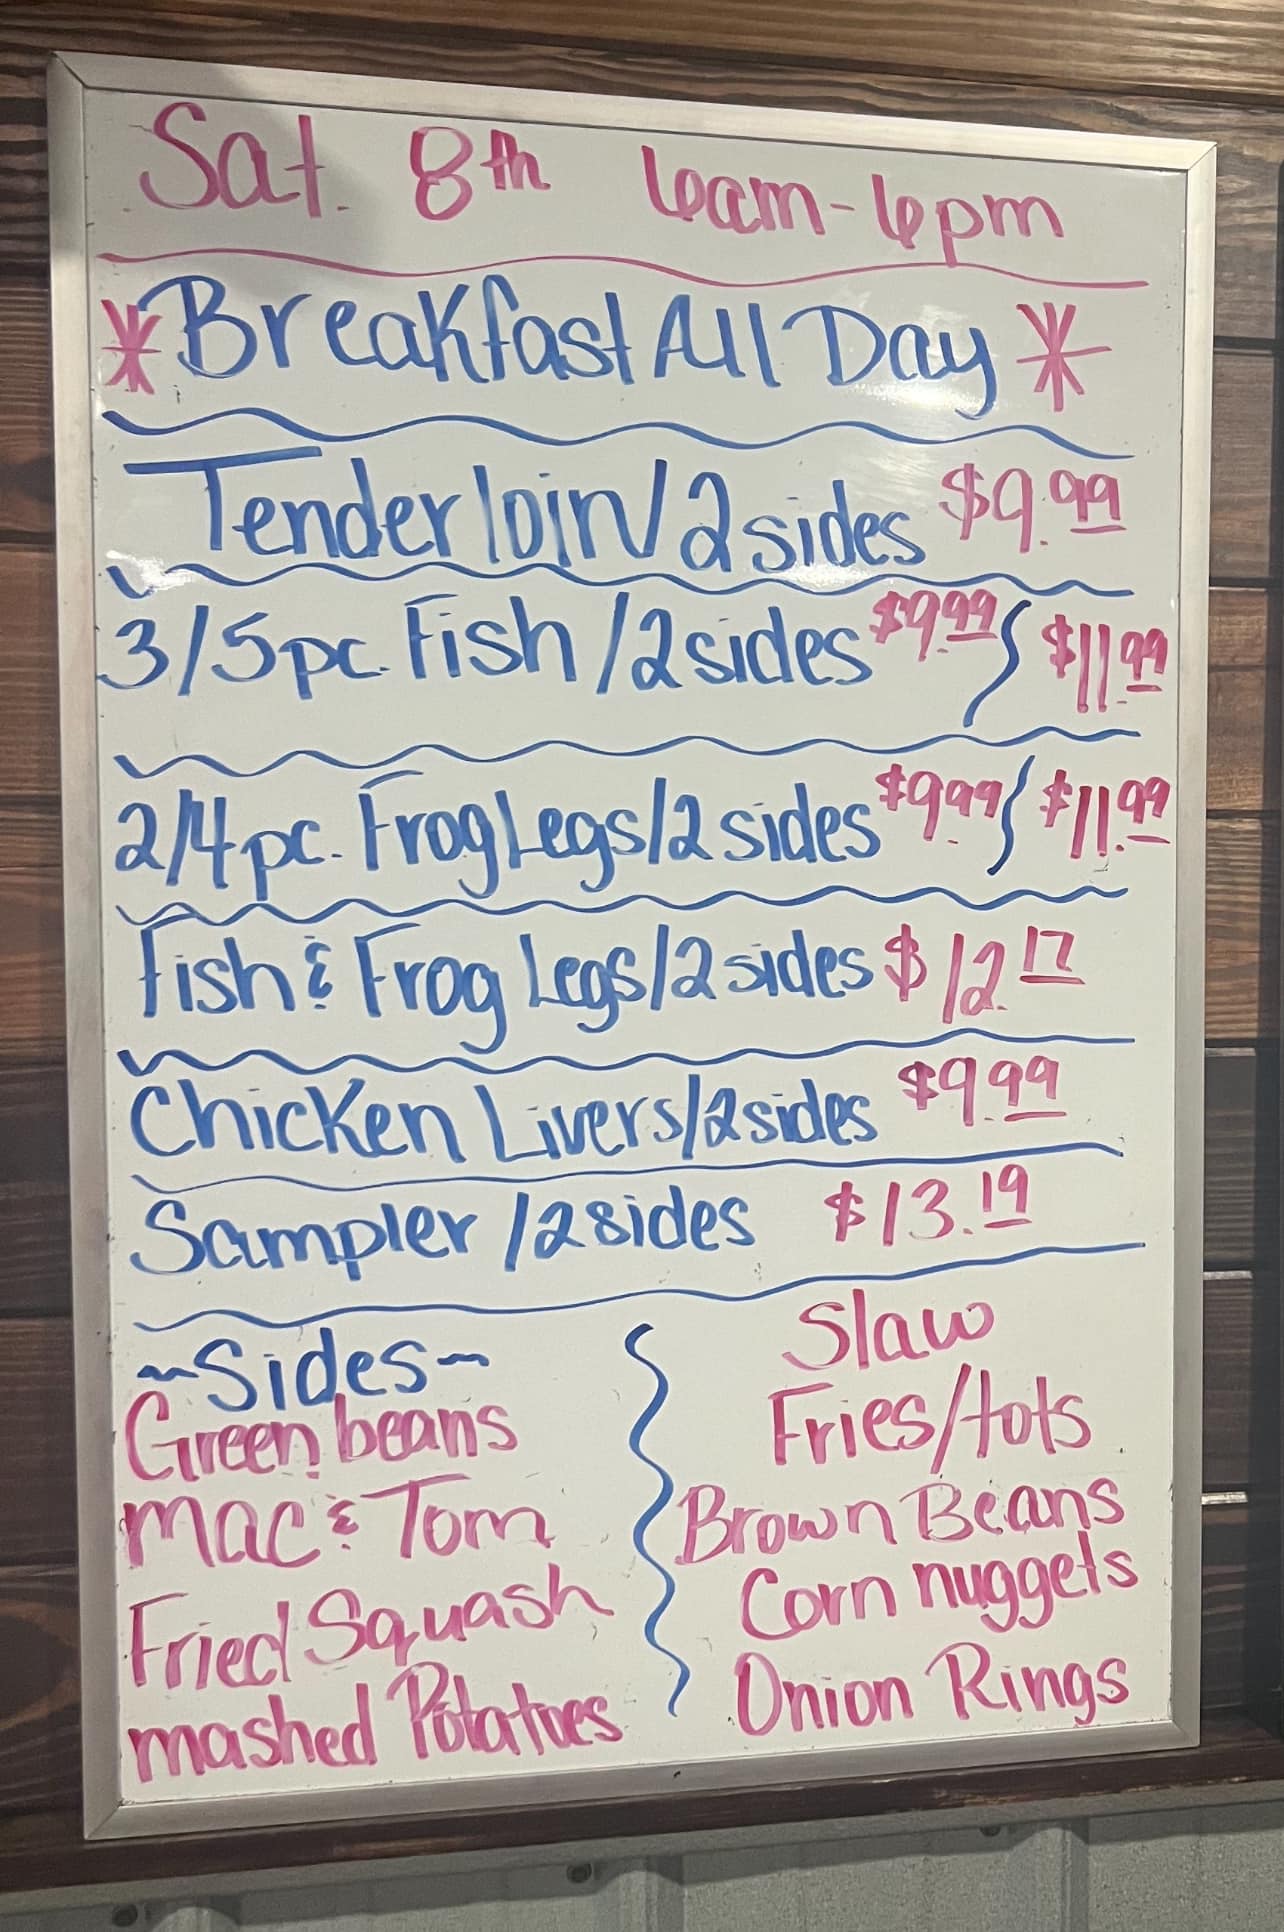 Sat. 8th 6am-6pm
*Breakfast All Day*
Tenderloin/2 sides $9.99
3/5pc. Fish/2 sides $9.99 $11.99
2/4pc. Frog Legs/2 sides $9.99 $11.99
Fish & Frog Legs/2 sides $12.17
Chicken Livers/2 sides $9.99
Sampler/2 sides $13.19
~Sides~
Green beans
Mac & Tom
Fried Squash
mashed Potatoes
Slaw
Fries/tots
Brown Beans
Corn nuggets
Onion Rings